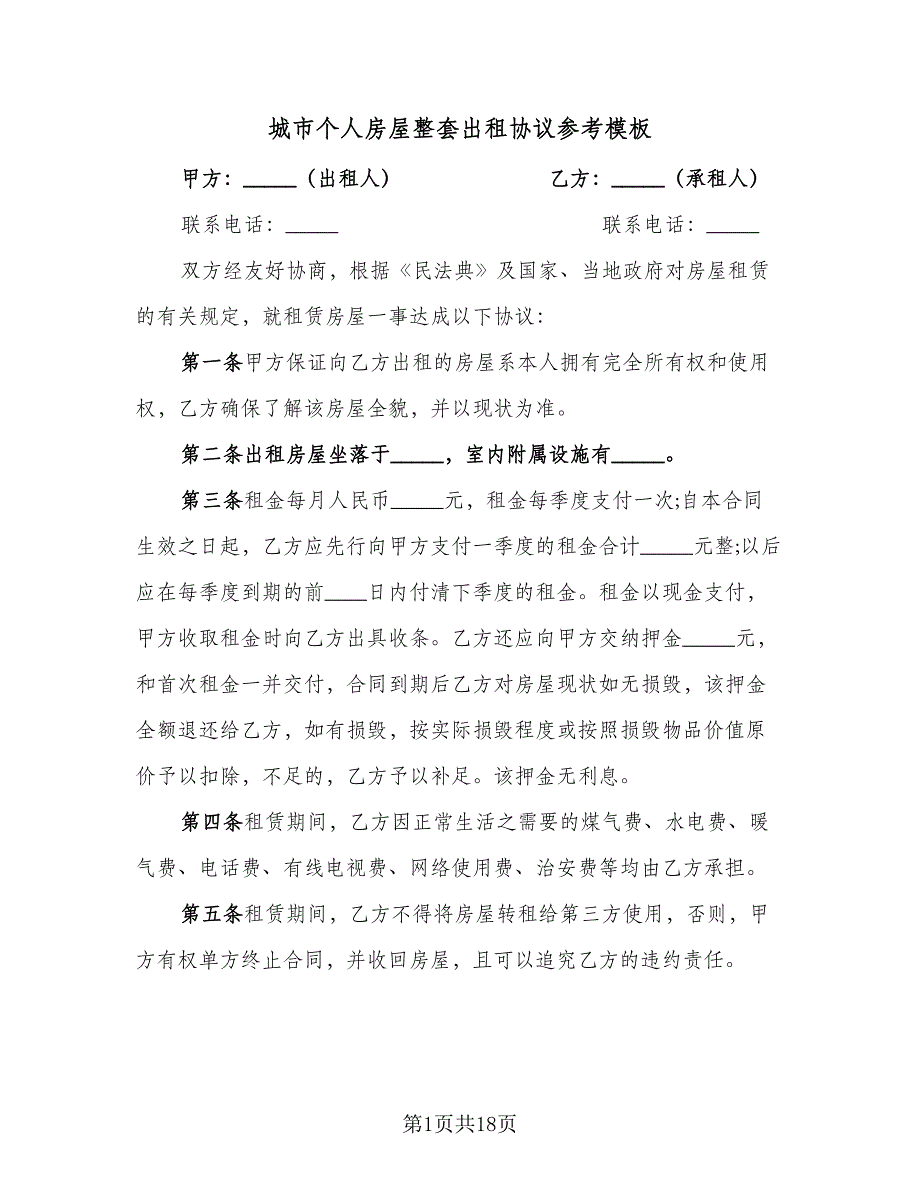 城市个人房屋整套出租协议参考模板
甲方：_____（出租人） 乙方：_____（承租人）
联系电话：_____ 联系电话：_____
双方经友好协商，根据《民法典》及国家、当地政府对房屋租赁
的有关规定，就租赁房屋一事达成以下协议：
第一条甲方保证向乙方出租的房屋系本人拥有完全所有权和使用
权，乙方确保了解该房屋全貌，并以现状为准。
第二条出租房屋坐落于_____，室内附属设施有_____。
第三条租金每月人民币_____元，租金每季度支付一次;自本合同
生效之日起，乙方应先行向甲方支付一季度的租金合计_____元整;以后
应在每季度到期的前____日内付清下季度的租金。租金以现金支付，
甲方收取租金时向乙方出具收条。乙方还应向甲方交纳押金_____元，
和首次租金一并交付，合同到期后乙方对房屋现状如无损毁，该押金
全额退还给乙方，如有损毁，按实际损毁程度或按照损毁物品价值原
价予以扣除，不足的，乙方予以补足。该押金无利息。
第四条租赁期间，乙方因正常生活之需要的煤气费、水电费、暖
气费、电话费、有线电视费、网络使用费、治安费等均由乙方承担。
第五条租赁期间，乙方不得将房屋转租给第三方使用，否则，甲
方有权单方终止合同，并收回房屋，且可以追究乙方的违约责任。
第1页共18页